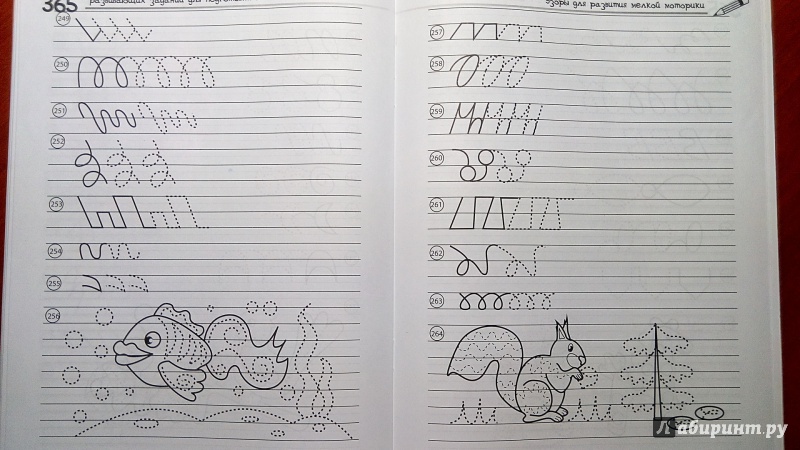 365 развивающих заданий для подготовки
249
250
251
252
253
254
255
256
узоры для развития мелкой моторики
257
258
259
260
261
262
263
264
Лабиринт.ру